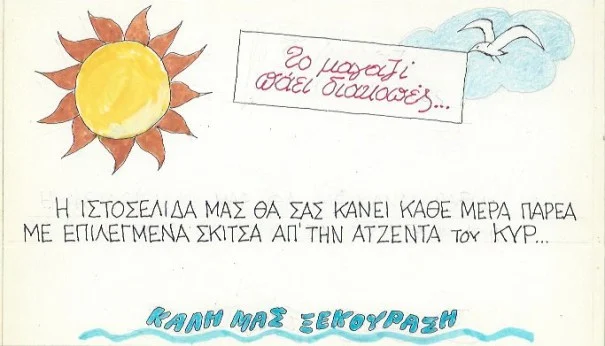 Το μαγαζί
πάει διακοπές...
Η ΙΣΤΟΣΕΛΙΔΑ ΜΑΣ ΘΑ ΣΑΣ ΚΑΝΕΙ ΚΑΘΕ ΜΕΡΑ ΠΑΡΕΑ
ΜΕ ΕΠΙΛΕΓΜΕΝΑ ΣΚΙΤΣΑ ΑΠ' ΤΗΝ ΑΤΖΕΝΤΑ του ΚΥΡ...
ΚΑΛΗ ΜΑΣ ΞΕΚΟΥΡΑΣΗ